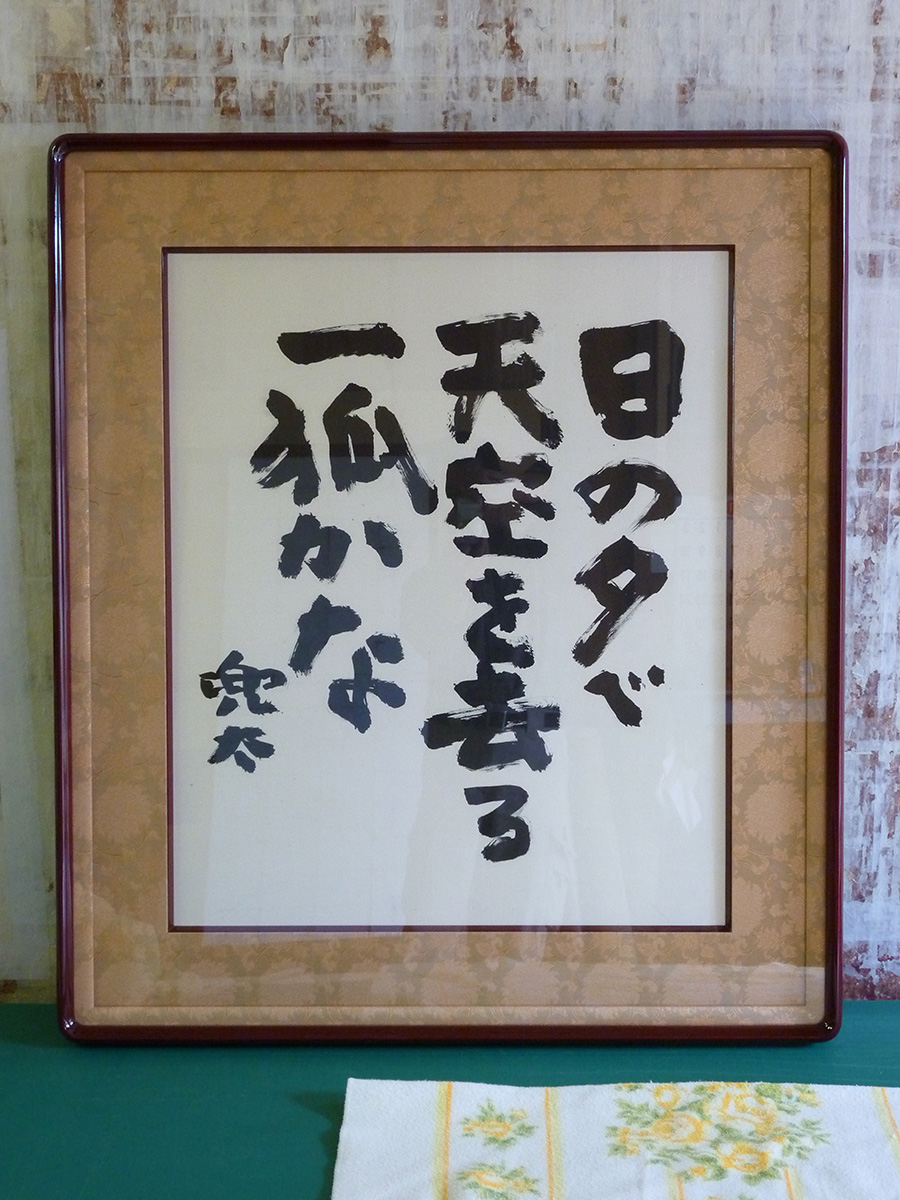 日の夕べ
天空を去る
一狐かな
兜太